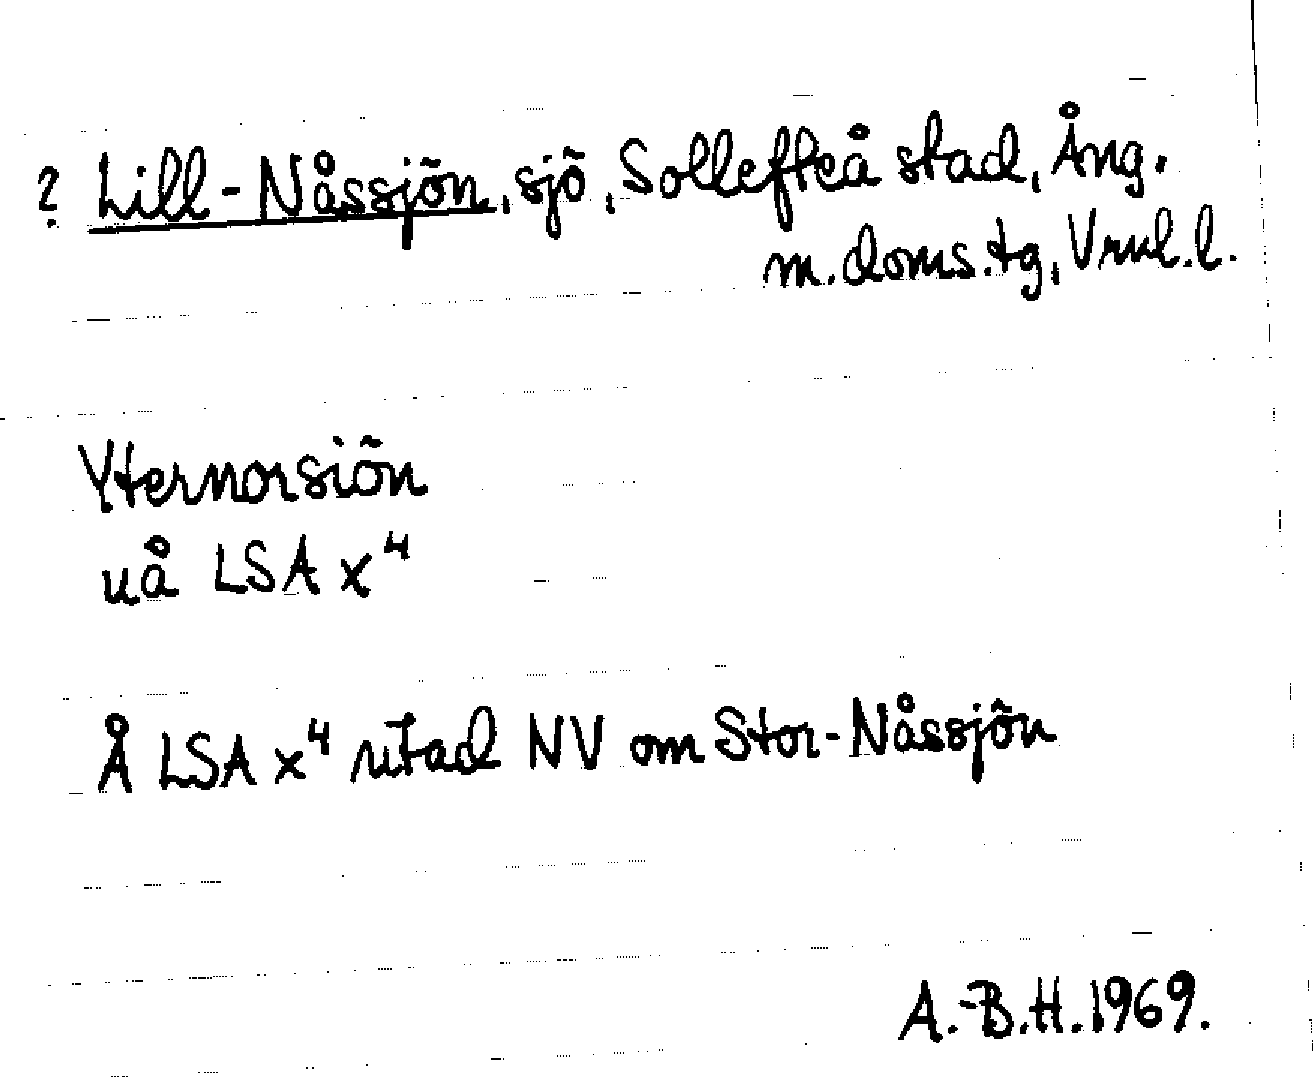 ? Lill-Nåssjön, sjö, Sollefteå stad, Ång.
m. doms. tg, Vrnl. l.
Yternorsiön
uå LSA x⁴
Å LSA x⁴ ritad NV om Stor-Nåssjön
A.-B.H. 1969.